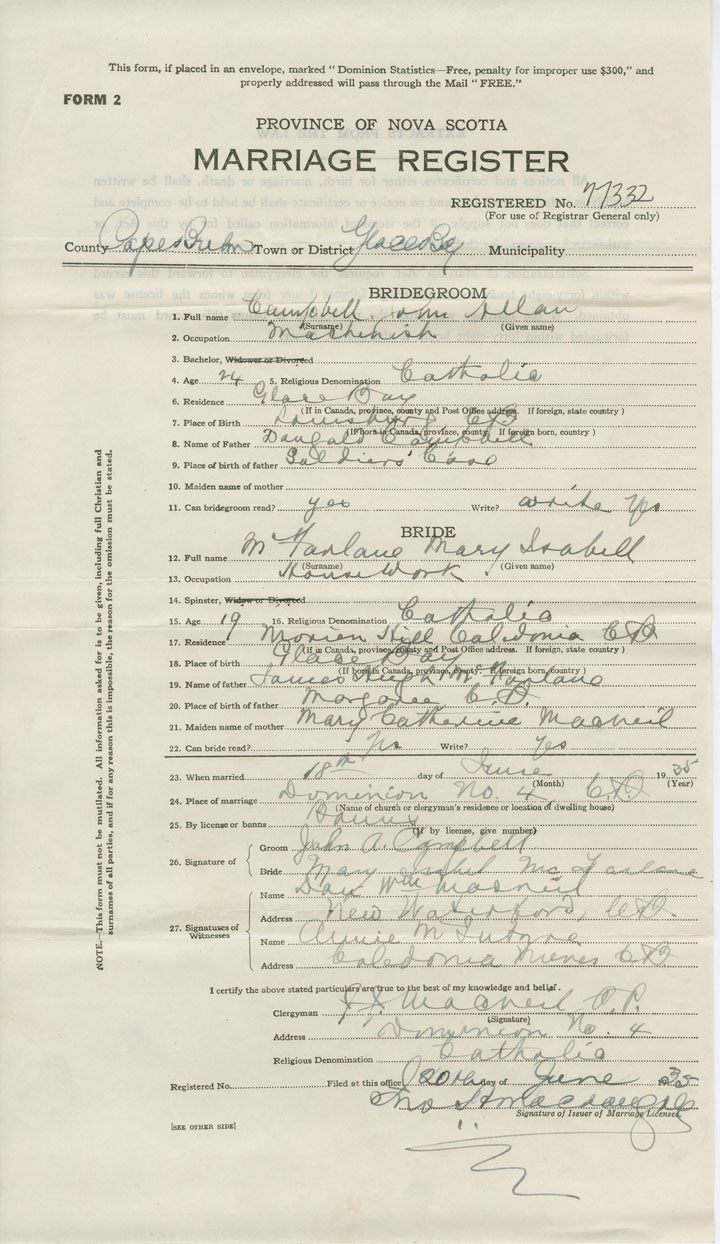 This form, if placed in an envelope, marked "Dominion Statistics—Free, penalty for improper use $300," and
properly addressed will pass through the Mail "FREE."
FORM 2
PROVINCE OF NOVA SCOTIA
MARRIAGE REGISTER
REGISTERED No. 77332
(For use of Registrar General only)
County Cape Breton Town or District Glace Bay Municipality
BRIDEGROOM
1. Full name Campbell John Allan
(Surname) (Given name)
2. Occupation
3. Bachelor, Widower or Divorced
4. Age 24 5. Religious Denomination Catholic
6. Residence Glace Bay
(If in Canada, province, county and Post Office address. If foreign, state country)
7. Place of Birth Louisburg C.B.
(If born in Canada, province, county. If foreign born, country)
8. Name of Father Dougald Campbell
9. Place of birth of father Soldiers' Cove
10. Maiden name of mother
11. Can bridegroom read? yes Write? write Yes
BRIDE
12. Full name McFarlane Mary Isabell
(Surname) (Given name)
13. Occupation Housework
14. Spinster, Widow or Divorced
15. Age 19 16. Religious Denomination Catholic
17. Residence Morien Hill Caledonia C.B
(If in Canada, province, county and Post Office address. If foreign, state country)
18. Place of birth Glace Bay
(If born in Canada, province, county. If foreign born, country)
19. Name of father James Hugh McFarlane
20. Place of birth of father Margaree C.B.
21. Maiden name of mother Mary Catherine MacNeil
22. Can bride read? Yes Write? Yes
23. When married 18th day of June 1935
(Month) (Year)
24. Place of marriage Dominion No. 4, C.B.
(Name of church or clergyman's residence or location of dwelling house)
25. By license or banns Banns
(If by license, give number)
26. Signature of
Groom John A. Campbell
Bride Mary Isabel McFarlane
27. Signatures of Witnesses
Name Dan Wm MacNeil
Address New Waterford, C.B.
Name Annie McIntyre
Address Caledonia Mines C.B
I certify the above stated particulars are true to the best of my knowledge and belief.
Clergyman MacNeil P.P.
(Signature)
Address Dominion No. 4
Religious Denomination Catholic
Registered No. Filed at this office 20th day of June 1935
Signature of Issuer of Marriage Licenses.
[SEE OTHER SIDE]
NOTE.—This form must not be mutilated. All information asked for is to be given, including full Christian and
surnames of all parties, and if for any reason this is impossible, the reason for the omission must be stated.